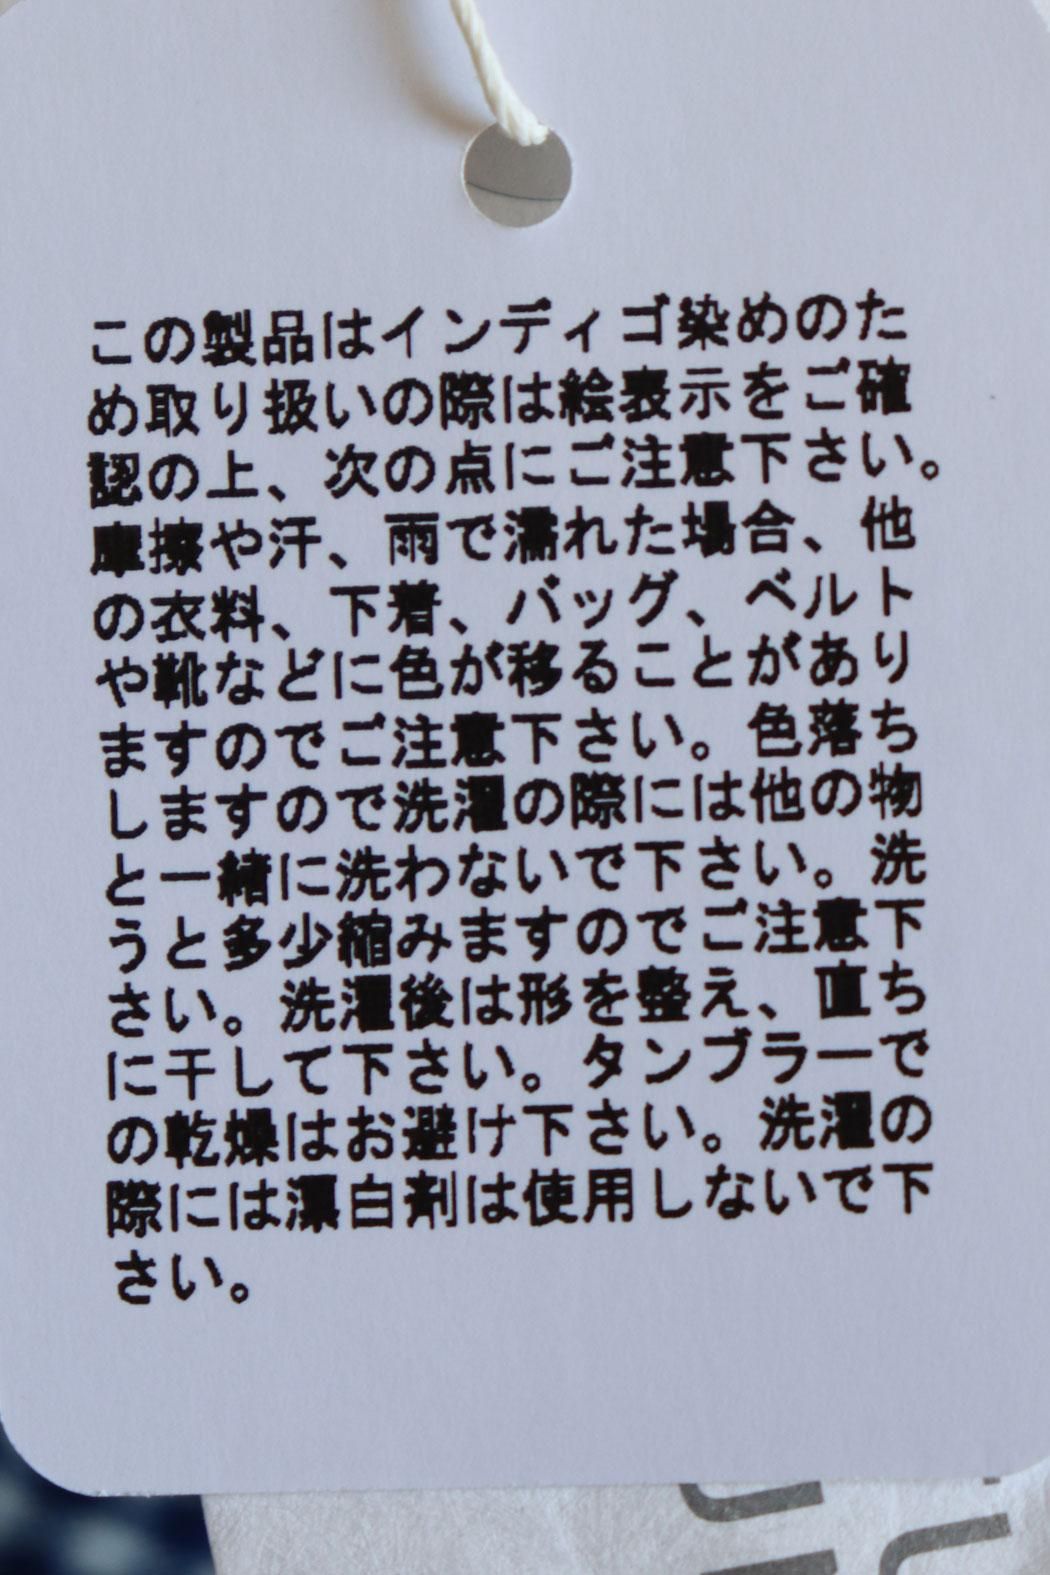 この製品はインディゴ染めのた
め取り扱いの際は絵表示をご確
認の上、次の点にご注意下さい。
摩擦や汗、雨で濡れた場合、他
の衣料、下着、バッグ、ベルト
や靴などに色が移ることがあり
ますのでご注意下さい。色落ち
しますので洗濯の際には他の物
と一緒に洗わないで下さい。洗
うと多少縮みますのでご注意下
さい。洗濯後は形を整え、直ち
に干して下さい。タンブラーで
の乾燥はお避け下さい。洗濯の
際には漂白剤は使用しないで下
さい。